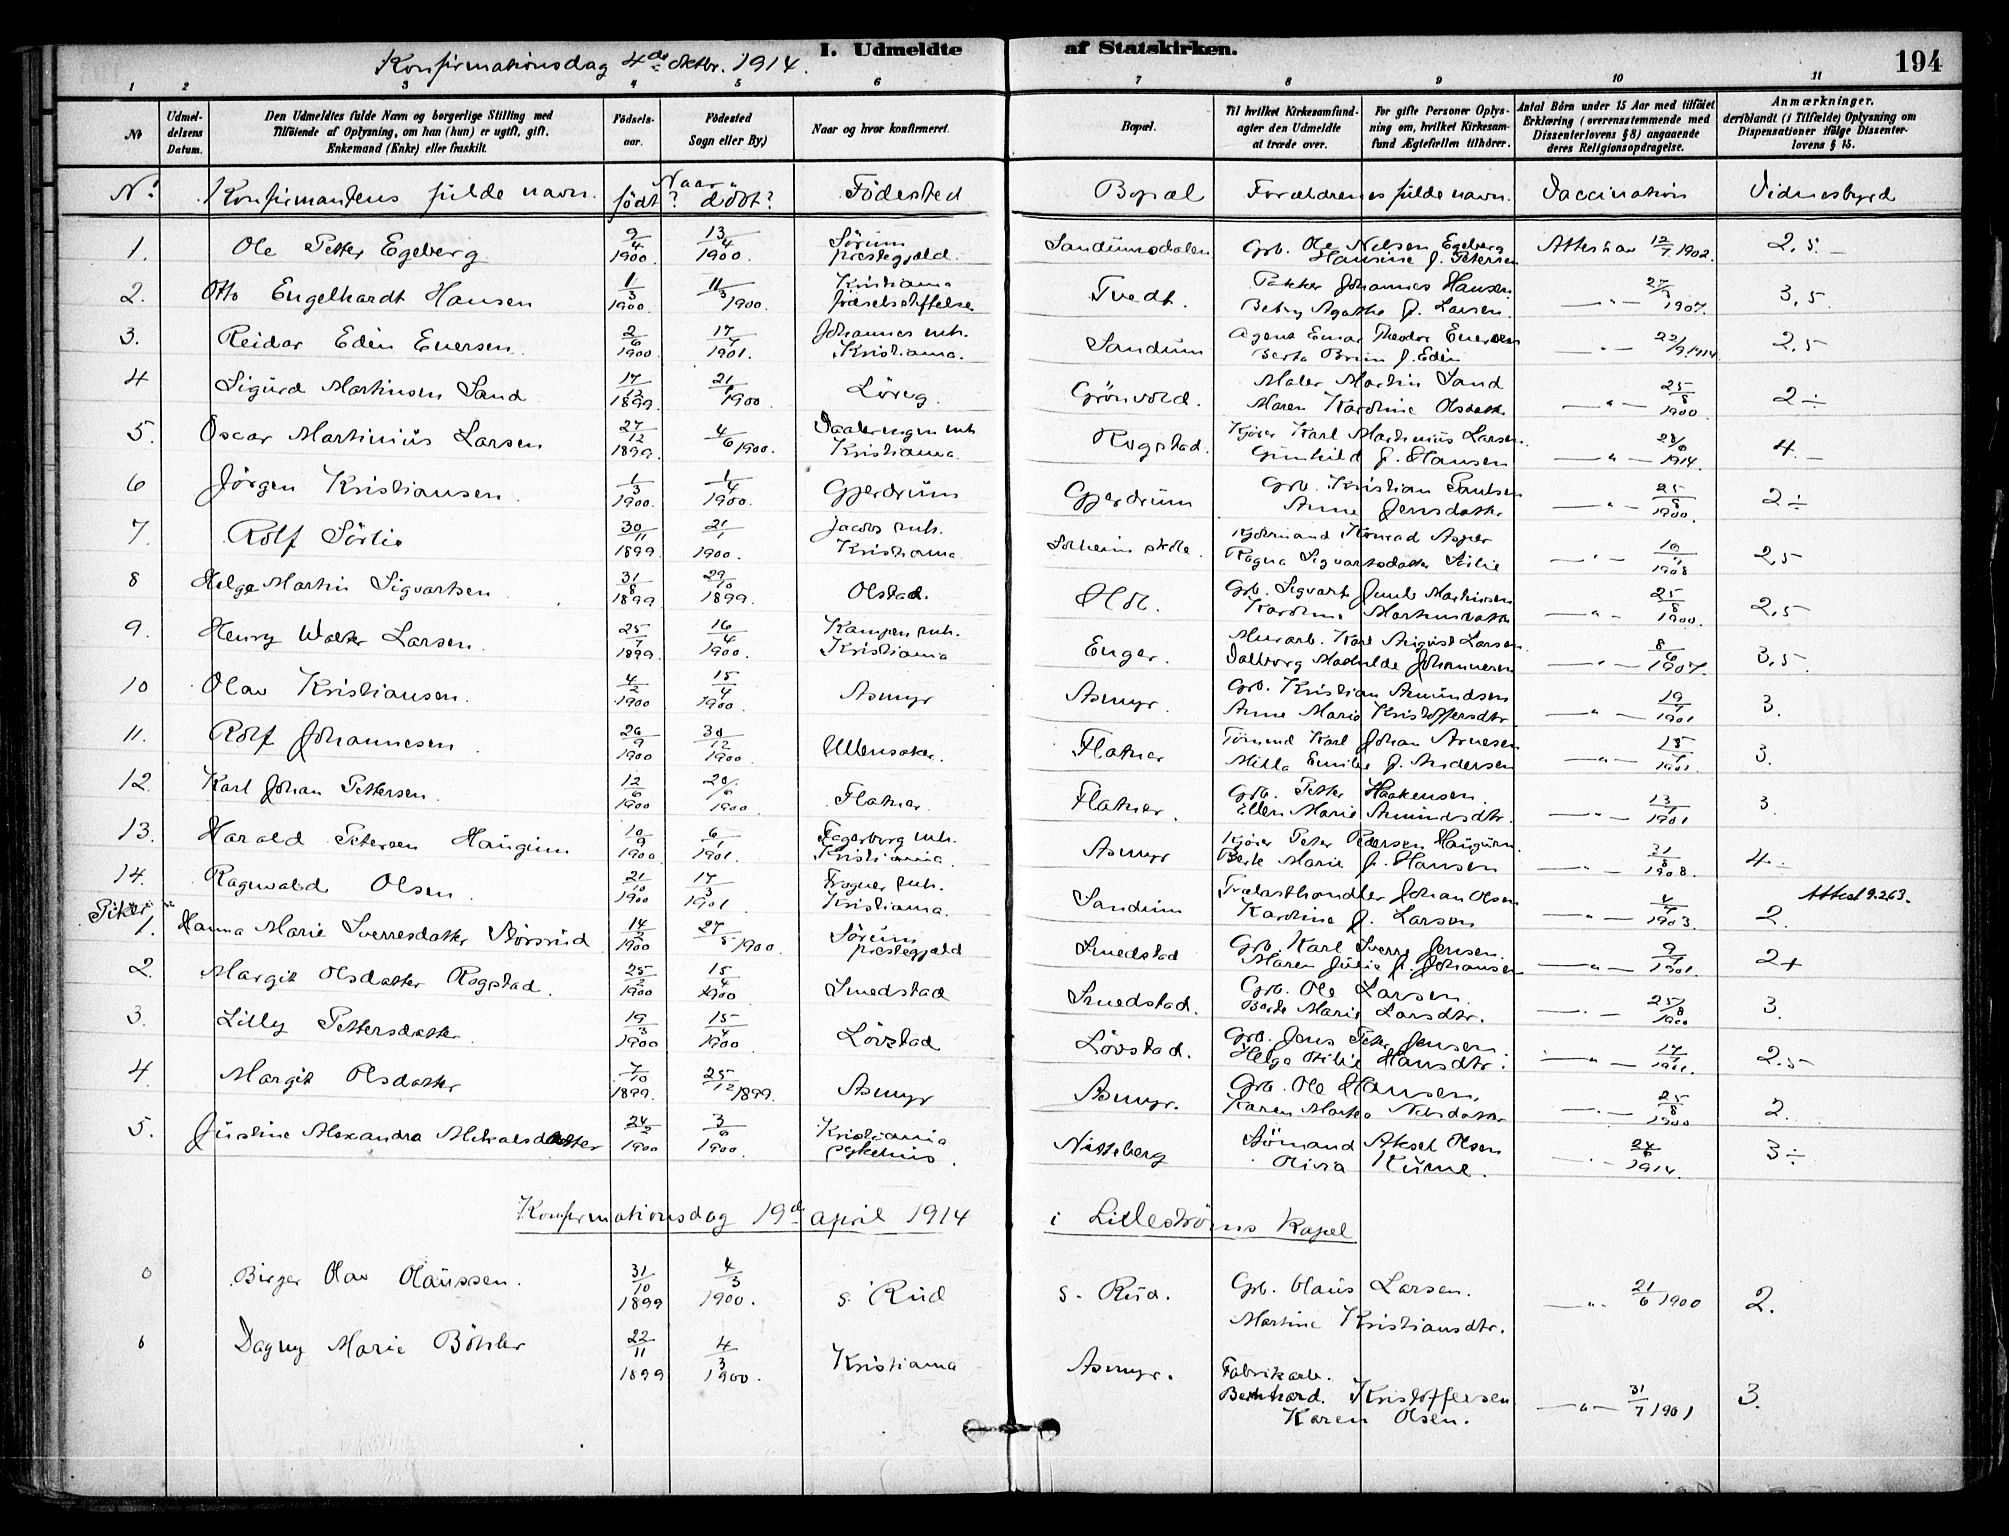 Konfirmationsdag 4de oktbr. 1914.
I. Udmeldte af Statskirken.
194
1 2 3 4 5 6 7 8 9 10 11
№
Udmeldelsens Datum.
Den Udmeldtes fulde Navn og borgerlige Stilling med
Tilföiende af Oplysning, om han (hun) er ugift, gift.
Enkemand (Enke) eller fraskilt.
Födselsaar.
Födested
Sogn eller By,)
Naar og hvor konfirmeret.
Bopæl.
Til hvilket Kirkesamfund-
agter den Udmeldte
at træde over.
For gifte Personer Oplys-
ning om, hvilket Kirkesam-
fund Ægtefællen tilhörer.
Antal Börn under 15 Aar med tilföiet
Erklæring (overensstemmende med
Dissenterlovens § 8) angaaende
deres Religionsopdragelse.
Anmærkninger.
deriblandt (i Tilfælde) Oplysning om
Dispensationer ifölge Dissenter-
lovens § 15.
No. Konfirmantens fulde navn. Naar födt? döbt? Födested Bopæl Forældrenes fulde navn. Vaccination Vidnesbyrd
1. Ole Petter Egeberg 9/4 1900. 13/4 1900. Sörum præstegjeld. Sandumsdalen Grb. Ole Nilsen Egeberg
Hansine f. Petersen Attest av 12/7 1902. 2,5.
2. Otto Engelhardt Hansen 1/3 1900. 11/3 1900. Kristiania födselsstiftelse Tvedt. Pakker Johannes Hansen
Betzy Agathe f. Larsen —"— 1907. 3,5.
3. Reidar Edèn Eversen 2/6 1900. 17/4 1901. Johannes mh. Kristiania. Sandum Agent Einar Theodor Eversen
Berta Bruun f. Edèn —"— 22/9 1914 2,5
4 Sigurd Martinsen Sand 17/12 1899. 21/1 1900. Löreg. Grönvold. Maler Martin Sand
Maren Karoline Olsdatter —"— 25/8 1900. 2÷
5. Oscar Martinius Larsen 27/12 1899. 4/6 1900. Vaalerengen mh Kristiania. Rogstad. Kjörer Karl Martinius Larsen.
Gunhild f. Hansen —"— 1914. 4.
6 Jörgen Kristiansen. 1/3 1900. 1/4 1900. Gjerdrum Gjerdrum Grb. Kristian Paulsen
Anne Jensdatter —"— 25/8 1900. 2÷
7. Rolf Sörlie 30/11 1899. 21/1 1900. Jacobs mh. Kristiania. Solheim skole. Kjörmand Konrad Asper
Ragna Sigvartsdatter Sörlie —"— 1908 2,5
8 Helge Martin Sigvartsen 31/8 1899. 29/10 1899. Olstad. Grb. Sigvart Martinsen
Karoline Martinsdatter —"— 25/8 1900. 2,5
9. Henry Walter Larsen. 25/7 1899. 16/4 1900. Kampen mh. Kristiania Enger. Murarb. Karl August Larsen
Valborg Mathilde Johannesen —"— 8/6 1907. 3,5.
10 Olav Kristiansen. 4/2 1900 15/4 1900. Asmyr Asmyr. Grb. Kristian Amundsen
Anne Marie Kristoffersdtr. —"— 19/7 1901 3.
11. Rolf Johannesen. 26/9 1900 30/12 1900. Ullensaker. Flatner Tömmd. Karl Johan Arnesen
Milla Emilie f. Andersen —"— 15/7 1901. 3.
12. Karl Johan Pettersen. 12/6 1900 1900. Flatner. Flatner. Grb. Petter Haakensen.
Ellen Marie Amundsdtr. —"— 13/7 1901 3
13. Harald Petersen Haugum 10/9 1900. 6/1 1901. Fagerborg mh. Kristiania Asmyr Kjörer Peter Pedersen Haugum.
Berte Marie f. Hansen —"— 31/8 1908. 4.
14. Ragnvald Olsen. 21/10 1900 17/3 1901. Frogner mh. Kristiania. Sandum Trælasthandler Johan Olsen
Karoline f. Larsen —"— 1903. 2. Attest 9.2.63.
Piker
1. Hanna Marie Sverresdatter Störsrud 14/2 1900 27/5 1900. Sörum præstegjeld Smedstad Grb. Karl Sverre Jensen.
Maren Julie f. Johansen —"— 9/7 1901. 2+
2. Margit Olsdatter Rogstad. 25/2 1900 15/4 1900. Smedstad Smedstad. Grb. Ole Larsen.
Berte Marie Larsdtr. —"— 25/8 1900 3.
3. Lilly Pettersdatter. 19/3 1900 15/4 1900. Lövstad Lövstad. Grb. Jens Peter Jensen.
Helga Otilie Hansdtr. —"— 17/7 1901. 2.5
4. Margit Olsdatter 7/10 1899. 25/12 1899. Asmyr Asmyr. Grb. Ole Hansen.
Karen Marta Nilsdatter —"— 25/8 1900 2.
5. Justine Alexandra Mikalsdatter 24/2 1900 3/6 1900. Kristiania sykehus. Nitteberg Sömand Aksel Olsen
Olivia Kurne. —"— 24/6 1914. 3÷
Konfirmationsdag 19de april 1914 i Lilleströms Kapel
0 Birger Olav Olaussen. 31/10 1899 4/3 1900. s. Rud s. Rud. Grb. Olaus Larsen.
Martine Kristiansdtr. —"— 21/6 1900 2.
0 Dagny Marie Böhler 22/11 1899 4/3 1900. Kristiania Asmyr. Fabrikarb.
Bernhard Kristoffersen
Karen Olsen. —"— 31/7 1901 3.